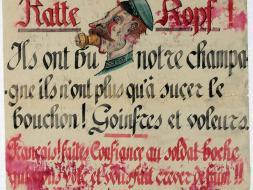 Ratte Kopf !
Ils ont bu notre champa-
gne ils n'ont plus qu'à sucer le
bouchon ! Goinfres et voleurs.
Français ! faites confiance au soldat boche
qui vous vole et vous fait crever de faim !!